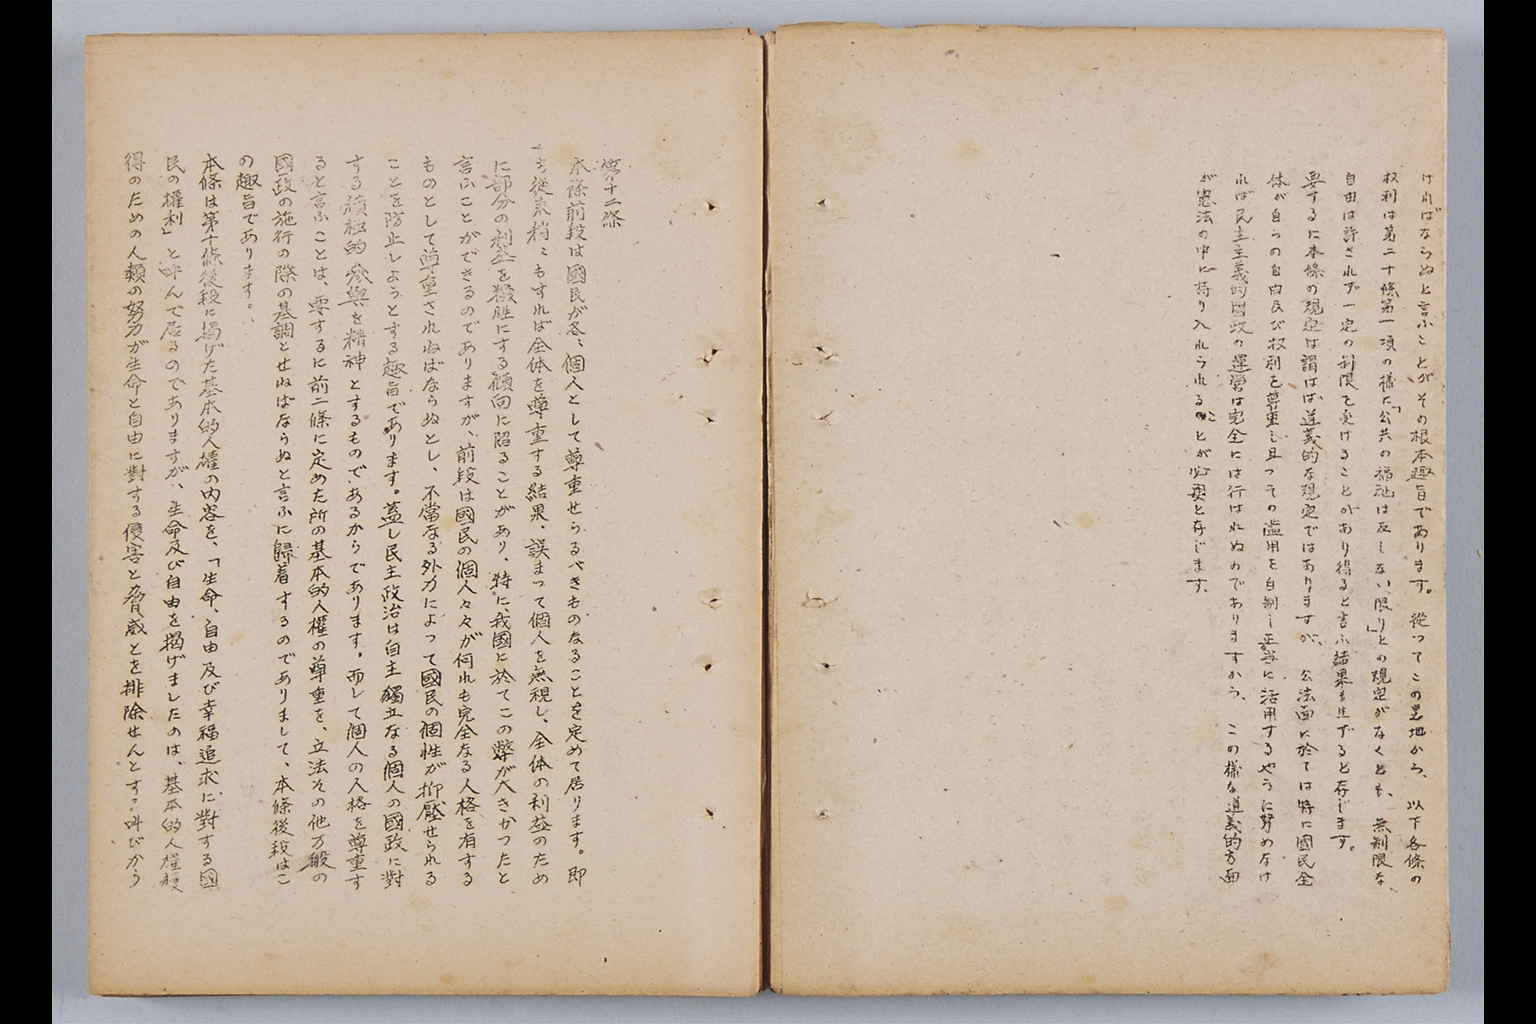 ければならぬと言ふことがその根本趣旨であります。從つてこの見地から、以下各條の
权利は第二十條第一項の樣に「公共の福祉に反しない限り」との規定がなくとも、無制限な
自由は許されず一定の制限を受けることがあり得ると言ふ結果も生ずると存じます。
要するに本條の規定は謂はば道義的な規定ではありますが、公法面に於ては特に國民全
体が自らの自由及び权利を尊重し且つその濫用を自制し正當に活用するやうに努めなけ
れば民主主義的國政の運営は完全には行はれぬのでありますから、この樣な道義的方面
が憲法の中に持り入れられることが必要と存じます、
第十二條
本條前段は國民が各、個人として尊重せらるべきものなることを定めて居ります。即
ち從来稍々もすれば全体を尊重する結果、誤まつて個人を無視し、全体の利益のため
に部分の利益を犠牲にする傾向に陥ることがあり、特に、我國に於てこの弊が大きかつたと
言ふことができるのでありますが、前段は國民の個人々々が何れも完全なる人格を有する
ものとして尊重されねばならぬとし、不當なる外力によつて國民の個性が抑壓せられる
ことを防止しようとする趣旨であります。蓋し民主政治は自主獨立なる個人の國政に對
する積極的參與を精神とするものであるからであります。而して個人の人格を尊重す
ると言ふことは、要するに前二條に定めた所の基本的人權の尊重を、立法その他万般の
國政の施行の際の基調とせねばならぬと言ふに歸着するのでありまして、本條後段はこ
の趣旨であります。
本條は第十條後段に揭げた基本的人權の内容を、「生命、自由及び幸福追求に對する國
民の權利」と呼んで居るのでありますが、生命及び自由を揭げましたのは、基本的人權獲
得のための人類の努力が生命と自由に對する侵害と脅威とを排除せんとする叫びから